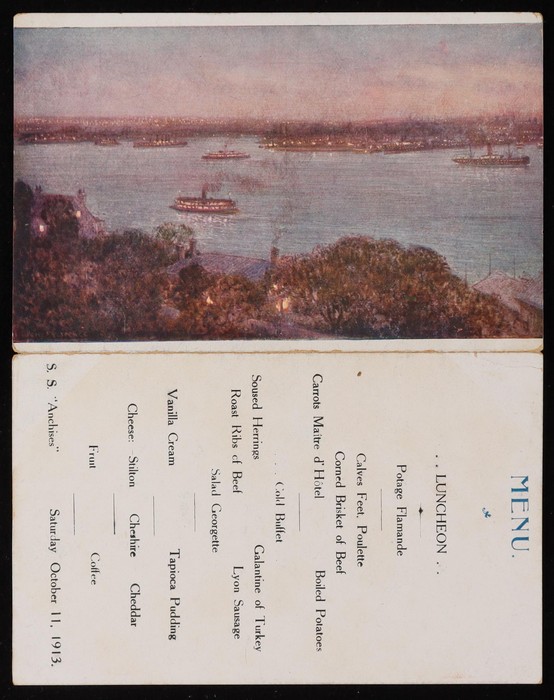 MENU.
. . LUNCHEON . .
Potage Flamande
Calves Feet, Poulette
Corned Brisket of Beef
Carrots Maitre d'Hotel Boiled Potatoes
Cold Buffet
Soused Herrings Galantine of Turkey
Roast Ribs of Beef Lyon Sausage
Salad Georgette
Vanilla Cream Tapioca Pudding
Cheese: Stilton Cheshire Cheddar
Fruit Coffee
S. S. "Anchises" Saturday October 11, 1913.